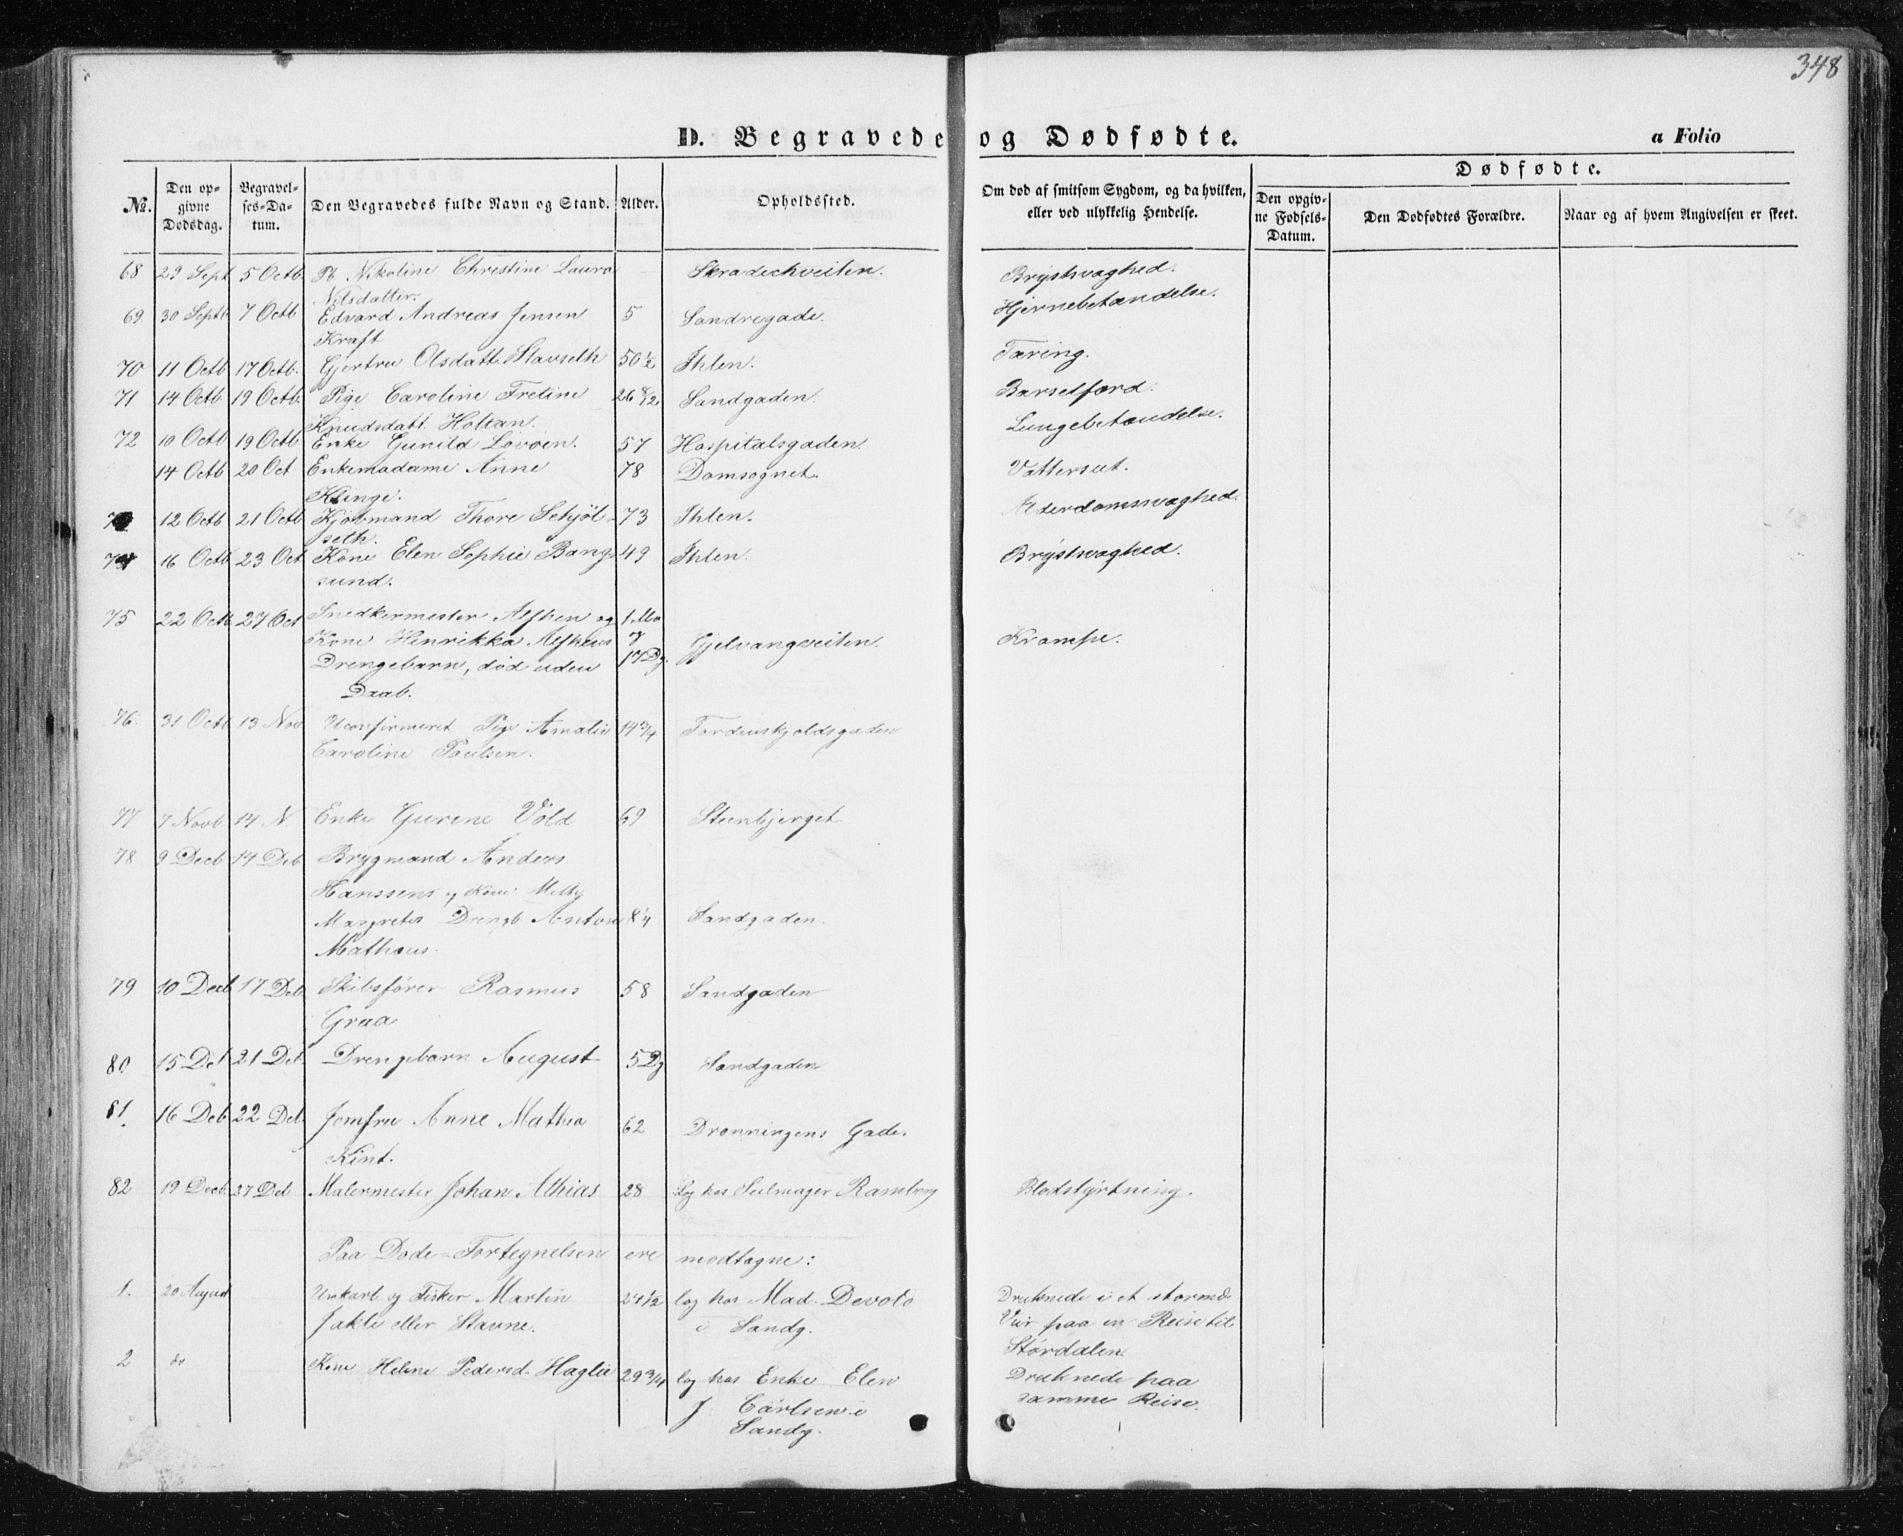 348
D. Begravede og Dødfødte.
a Folio
No. Den opgivne Dødsdag. Begravelses-Datum. Den Begravedes fulde Navn og Stand. Alder. Opholdssted. Om død af smitsom Sygdom, og da hvilken, eller ved ulykkelig Hendelse. Dødfødte. Den opgivne Fødsels-Datum. Den Dødfødtes Forældre. Naar og af hvem Angivelsen er skeet.
68 29 Sept 5 Octb Pb Nikoline Christine Laura Skradechveiten. Brystsvaghed.
Nilsdatter.
69 30 Septb 7 Octb Edvard Andreas Jensen 5 Sandregade. Hjernebetændelse.
Kraft
70 11 Octb 17 Octb. Gjertru Olsdatt. Stavseth 50 1/2 Ihlen. Tæring.
71 14 Octb 19 Octb. Pige Caroline Fretine 26 8/12 Sandgaden. Barselfærd.
Knudsdatt. Holtan.
72 10 Octb 19 Octb Enke Gunild Lovøen. 57 Hospitalsgaden. Lungebetændelse.
14 Octb 20 Oct Enkemadame Anne 78 Domsognet. Vattersut.
Klinge.
12 Octb 21 Octb Kjøbmand Thore Schjøl- 73 Ihlen. Alderdomssvaghed.
seth.
74 16 Octb 23 Oct Kone Elen Sophie Bang- 49 Ihlen. Brystsvaghed.
sund.
75 22 Octb 27 Oct Snedkermester Alfhen og 1 Mo
Kone Henrikka Alfhens 7 Gjelvangveiten. Krampe.
Drengebarn, død uden 17 Dg.
Daab.
76. 31 Octb 13 Nov Uconfirmeret Pige Amalie 14 3/4 Tordenskjoldsgaden
Caroline Poulsen.
77 7 Novb 14 N. Enke Gurine Vold 69 Steenbjerget
78 9 Decb 14 Deb Brygmand Anders
Hanssens og Kone Melby
Margretes Drengb Anton 8 1/4 Sandgaden.
Mathæus.
79 10 Decb 17 Deb Skibsfører Rasmus 58 Sandgaden
Graa
80 15 Deb 21 Deb Drengebarn August 5 Dg Sandgaden
81. 16 Deb 22 Deb. Jomfru Anne Mathea 62 Dronningens Gade.
Kint.
82 19 Decb 27 Deb Malermester Johan Athias 28 Log hos Seilmager Ramberg Blodstyrtning.
Paa Døde-Fortegnelsen ere modtagne:
1. 20 August Unkarl og Fisker Martin 24 1/2 log hos Mad. Devold Druknede i et stormd.
Jakli eller Stavne. i Sandg. Veir paa en Reise til
Størdalen.
2 do Kone Helene Pedersd. Haglie 29 3/4 log hos Enke Elen Druknede paa
J Carlsen i samme Reise.
Sandg.